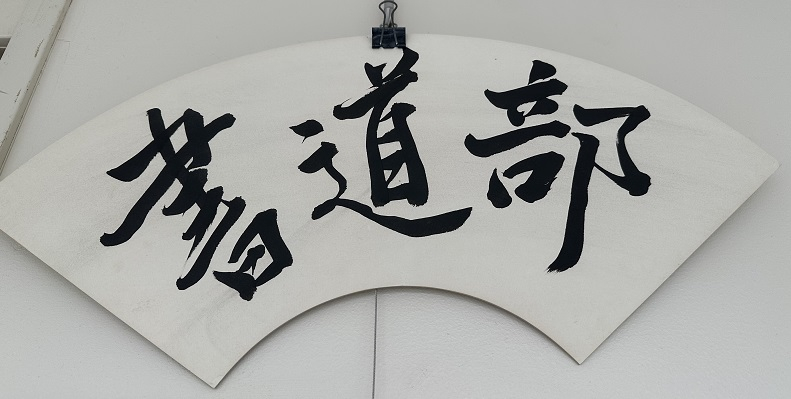 書道部